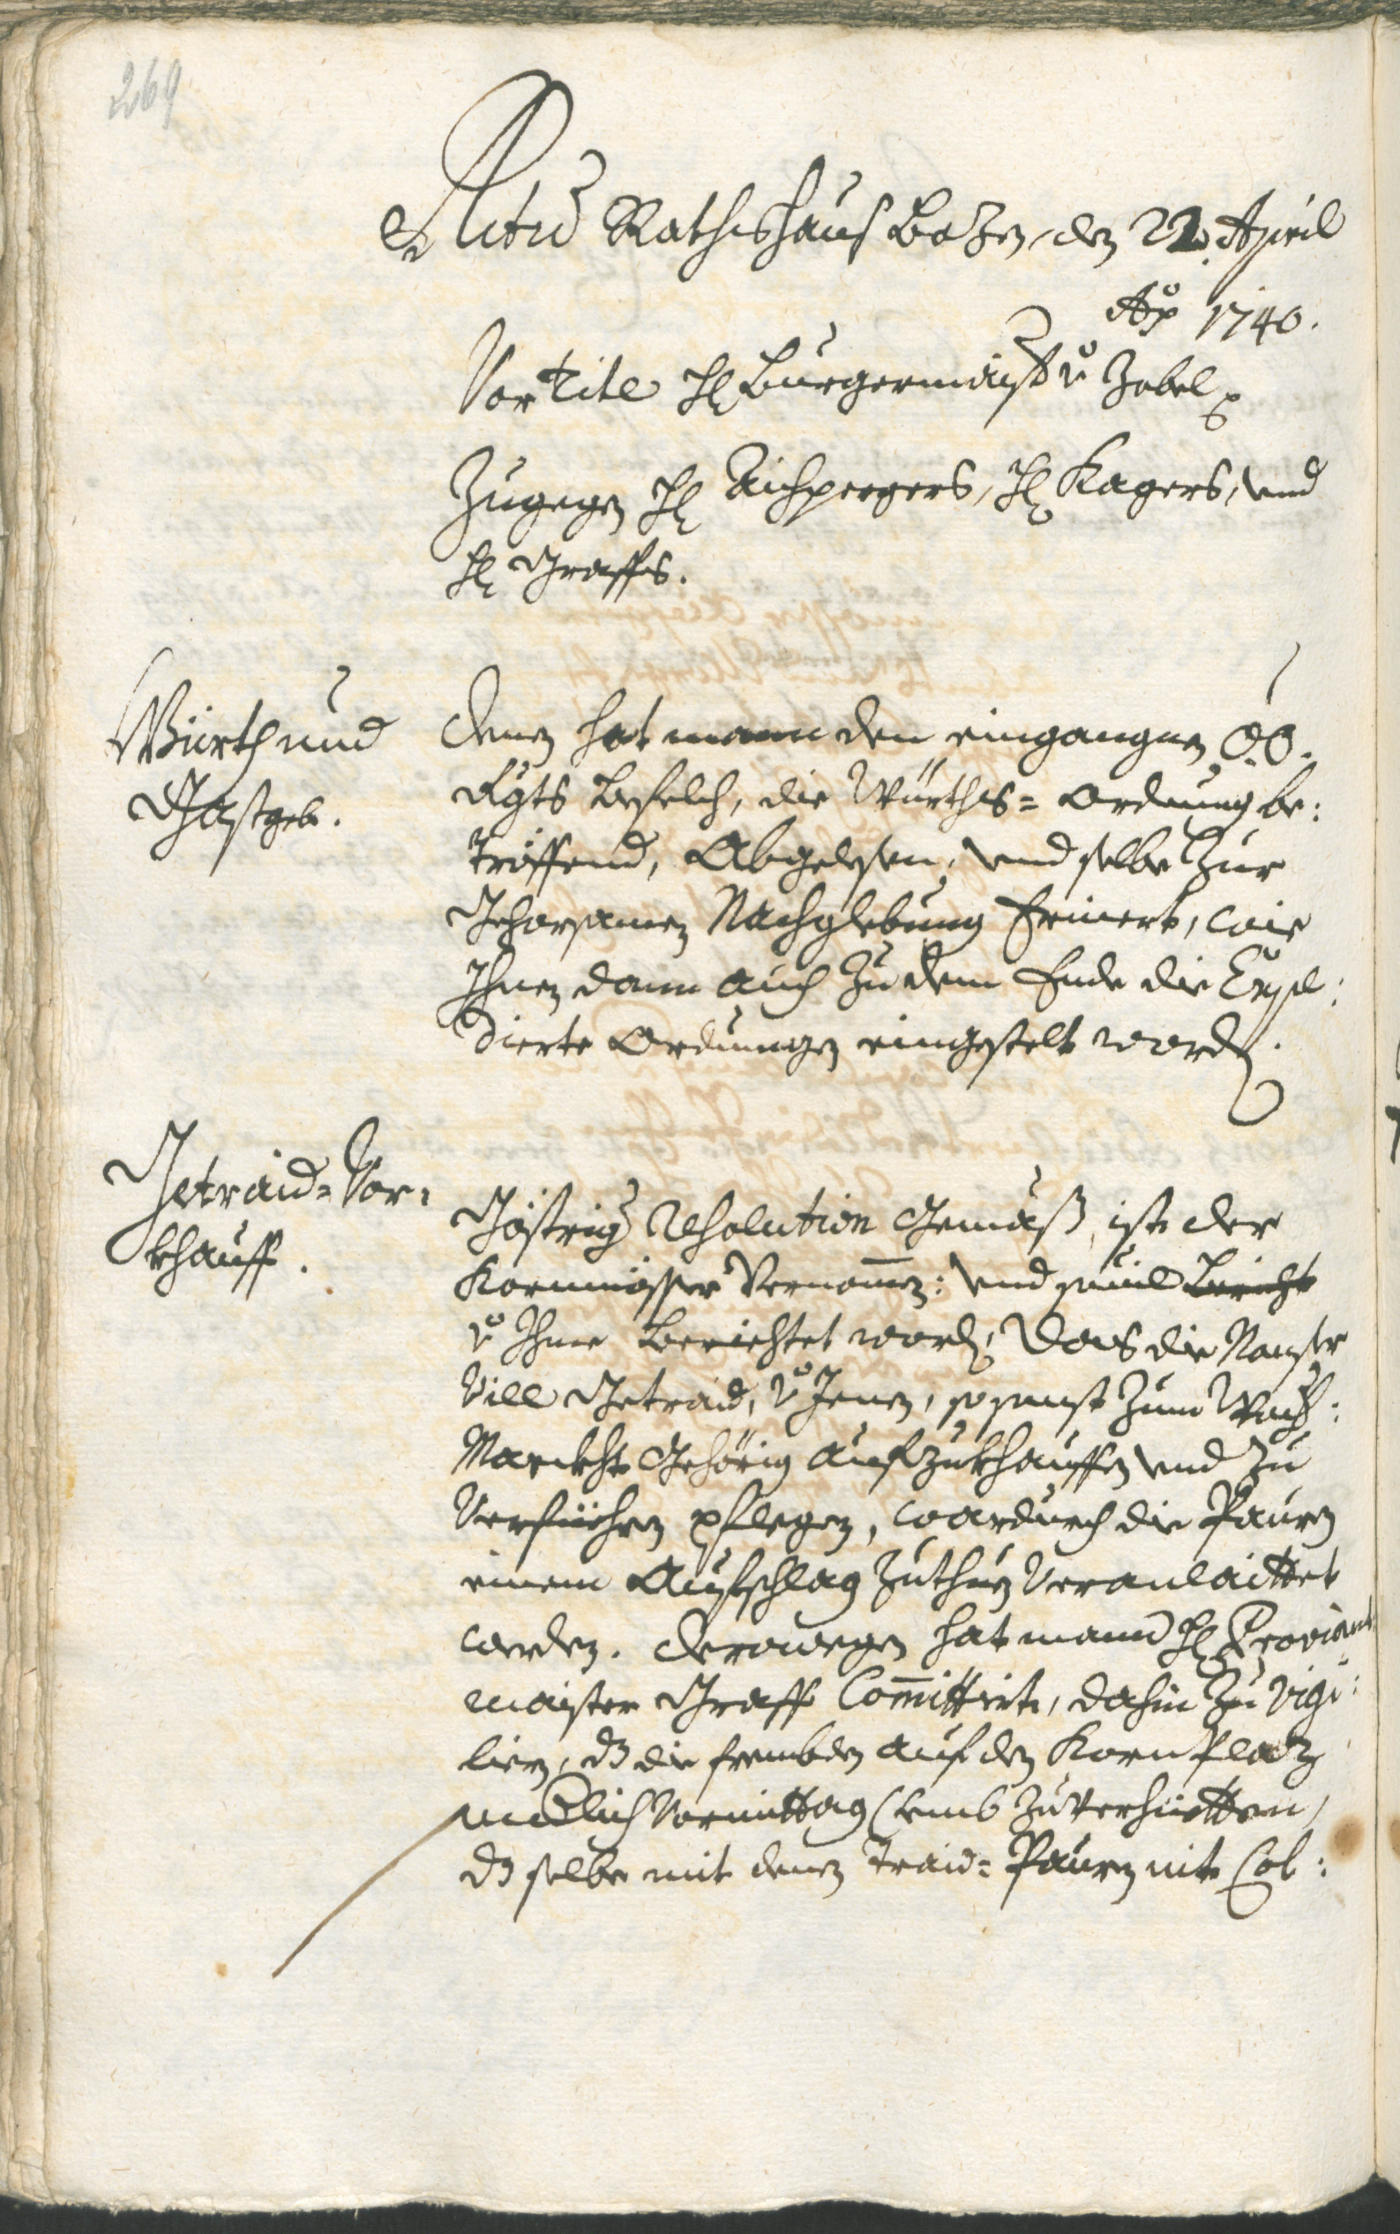 269
Actum Rathshauß Bozen, den 22. April
Ao 1740.
Vor Titl H Burgermaister v Zobel p
Zugegen H Aichpergers, H Kagers, und
H Graffs.
Würth und
Gastgeb.
Denen hat mann den eingangnen OÖ.
Rgts Befelch, die Würths= Ordnung be:
treffend, Abgelesen, und selbe zur
Gehorsamen Nachglebung Erinert, wie
Ihnen dann auch zu dem Ende die Expe:
dierte Ordnungen eingestelt worden.
Getraid=Vor=
khauff.
Gestrig Resolution Gemäß ist der
Kornmösser Vernomen: und sovil Bericht
v Ihme Berichtet worden, das die Nonser
Vill Getraid, v Jenen, so sonst zum Woch:
Marckht Gehörig aufzukhauffen und zu
Verfüehren pflegen, wordurch die Paurn
einem Aufschlag zuthun Veranlaittet
werden. Derowegen hat mann H Proviant
maister Graff Committirt, dahin zu Vigi:
liern, dz die frembden auf den Korn Plaz
endlich Vormittag (umb zuverhietten,
dz selbe mit denen Traid= Paurn nit Col: